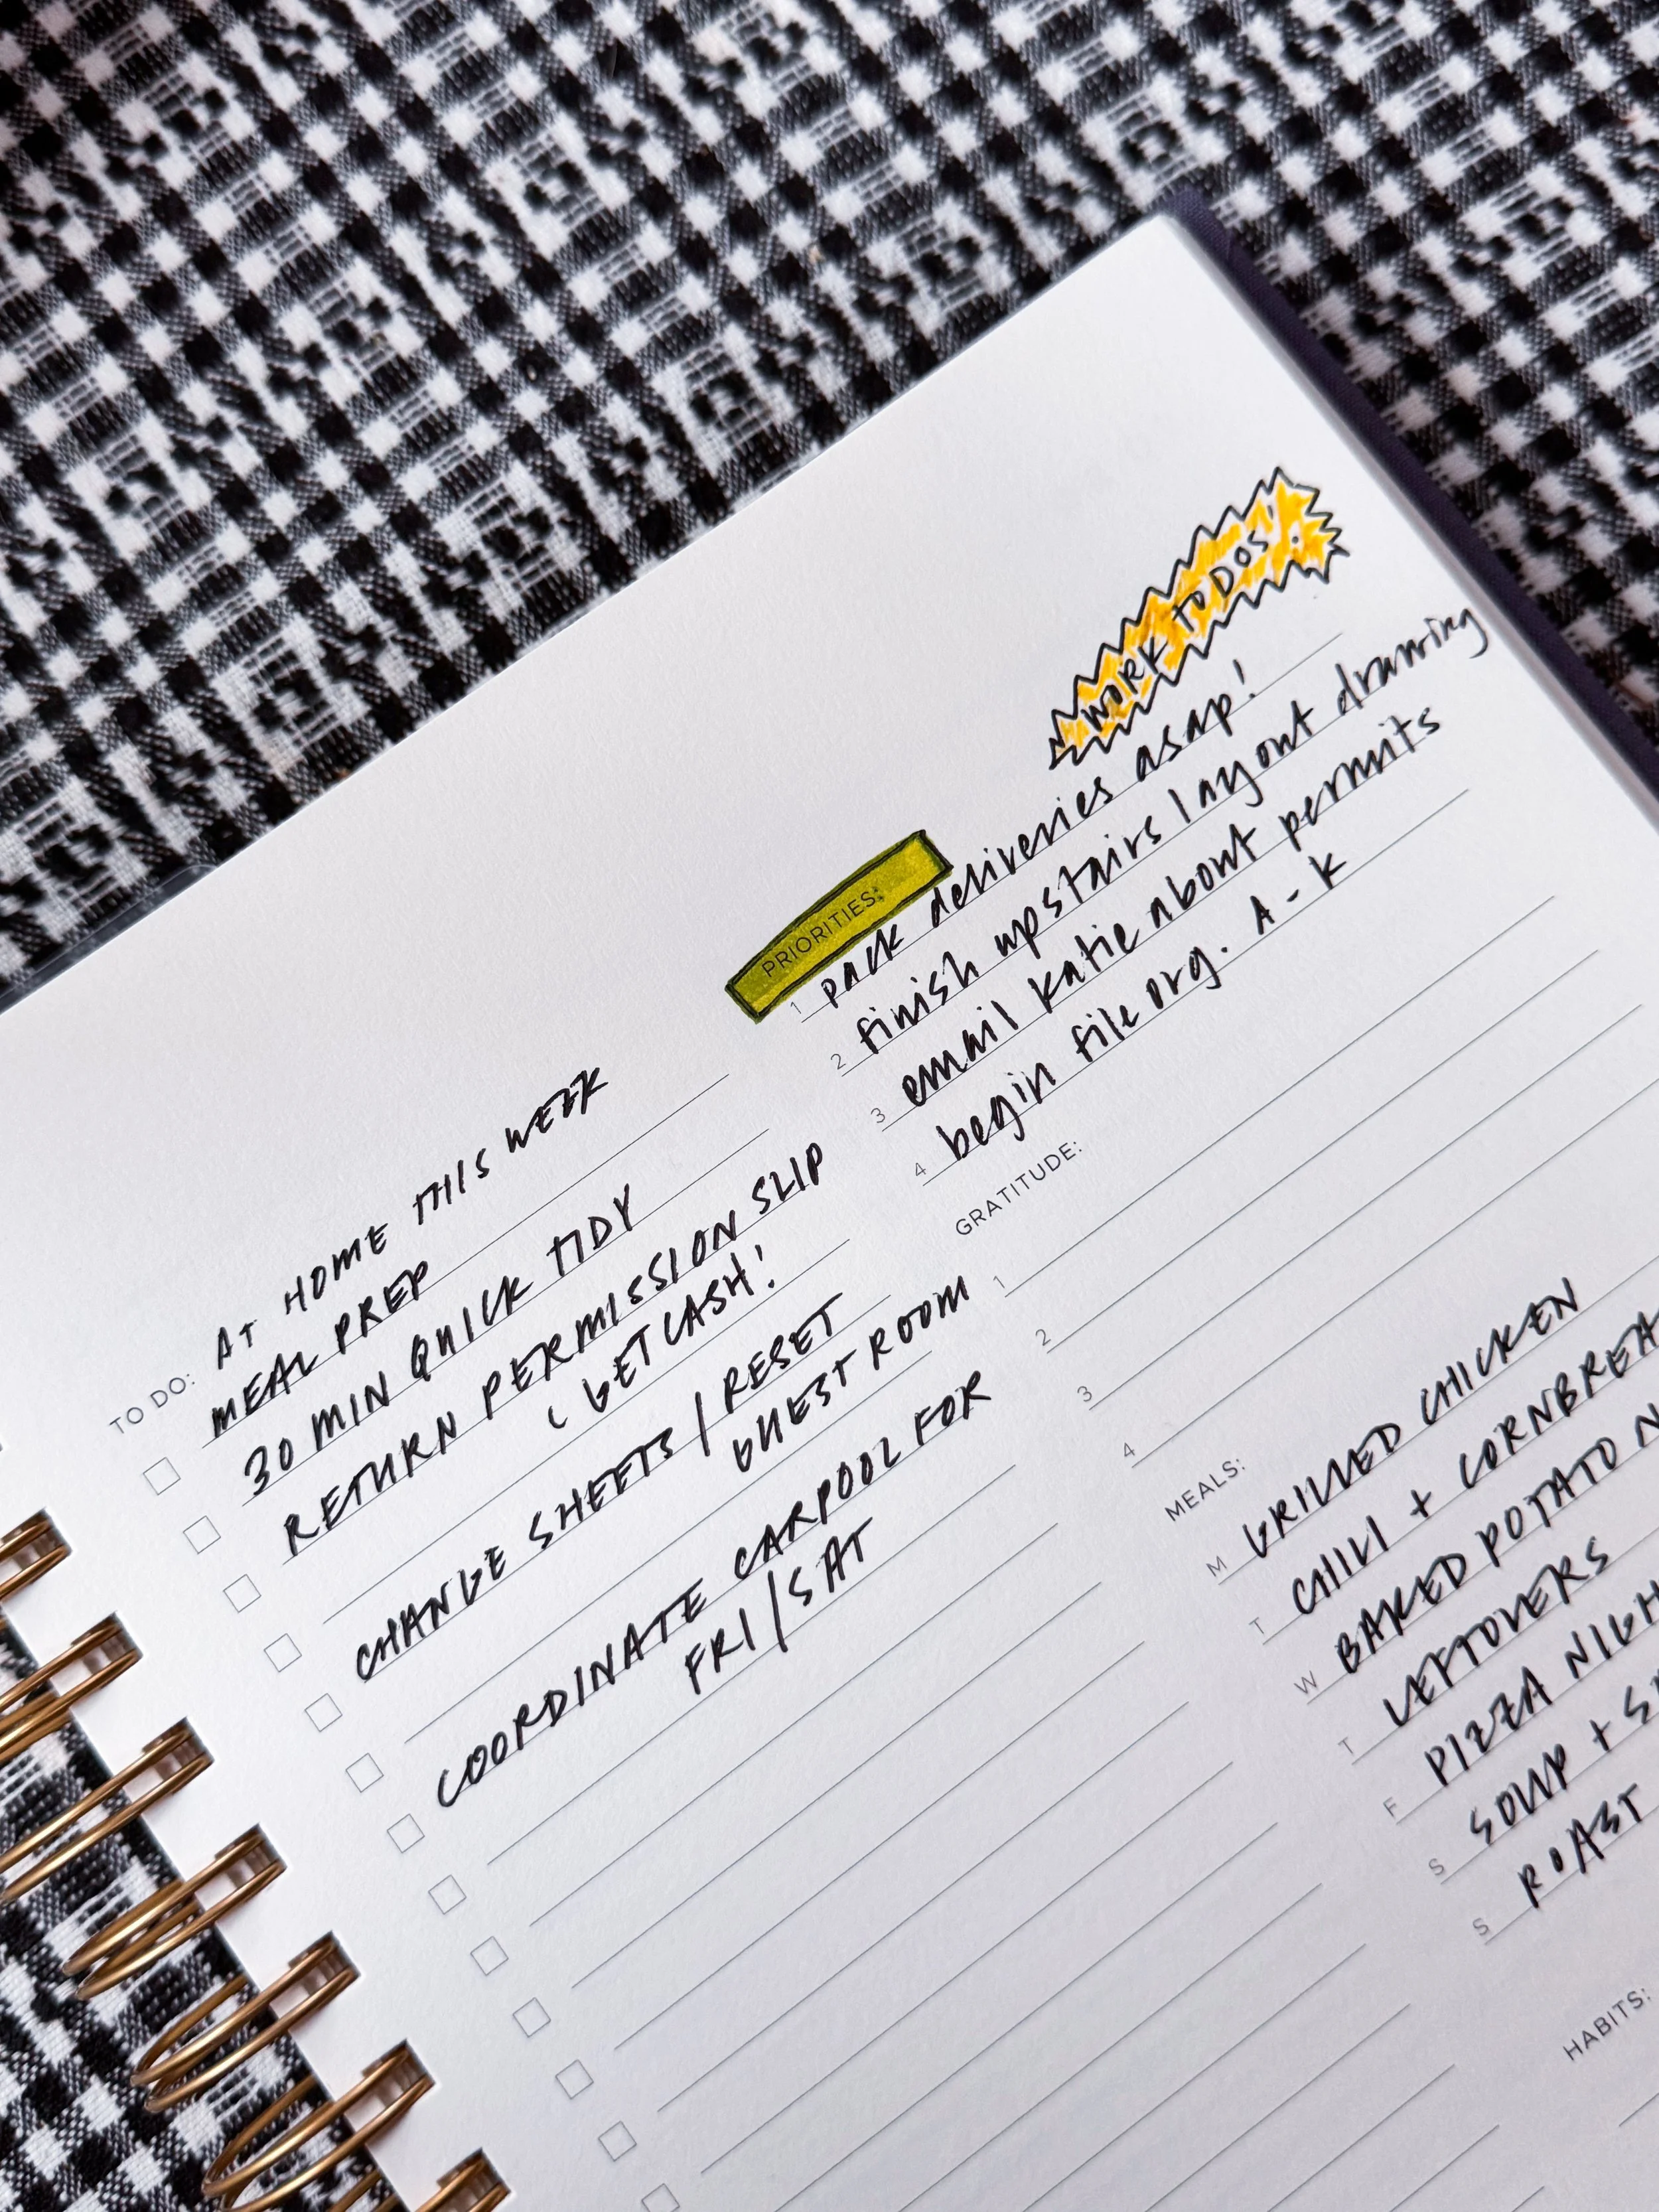 TO DO: AT HOME THIS WEEK
MEAL PREP
30 MIN QUICK TIDY
RETURN PERMISSION SLIP
GET CASH!
CHANGE SHEETS / RESET
GUEST ROOM
COORDINATE CARPOOL FOR
FRI / SAT
WORK TO DOS!
PRIORITIES:
1 pack deliveries asap!
2 finish upstairs layout drawing
3 email katie about permits
4 begin file org. A - K
GRATITUDE:
1
2
3
4
MEALS:
M GRILLED CHICKEN
T CHILI + CORNBREA
W BAKED POTATO N
T LEFTOVERS
F PIZZA NIGH
S SOUP + S
S ROAST
HABITS: